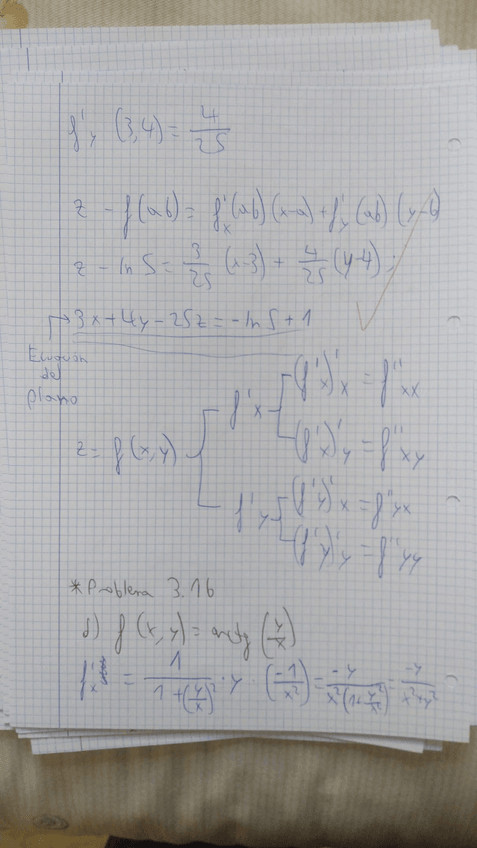 f'y (3,4) = 4/25
z - f(a b) = f'x (a b) (x-a) + f'y (a b) (y-b)
z - ln 5 = 3/25 (x-3) + 4/25 (y-4);
→ 3x+4y-25z = -ln 5 + 1
Ecuacion
del
plano
z = f(x,y)
f'x
(f'x)'x = f''xx
(f'x)'y = f''xy
f'y
(f'y)'x = f''yx
(f'y)'y = f''yy
*Problema 3.16
f (x,y) = arctg (y/x)
f'x = 1/(1+(y/x)²) · y · (-1/x²) = -y/(x²(1+y²/x²)) = -y/(x²+y²)